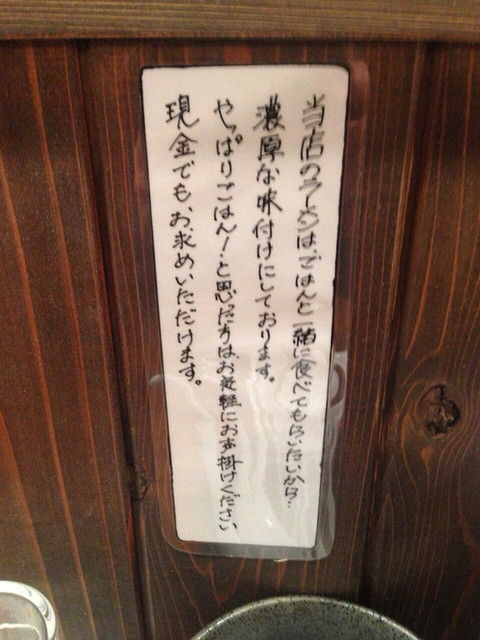 当店のラーメンは、ごはんと一緒に食べてもらいたいから…
濃厚な味付けにしております。
やっぱりごはん！と思った方は、お気軽にお声掛けください
現金でも、お求めいただけます。